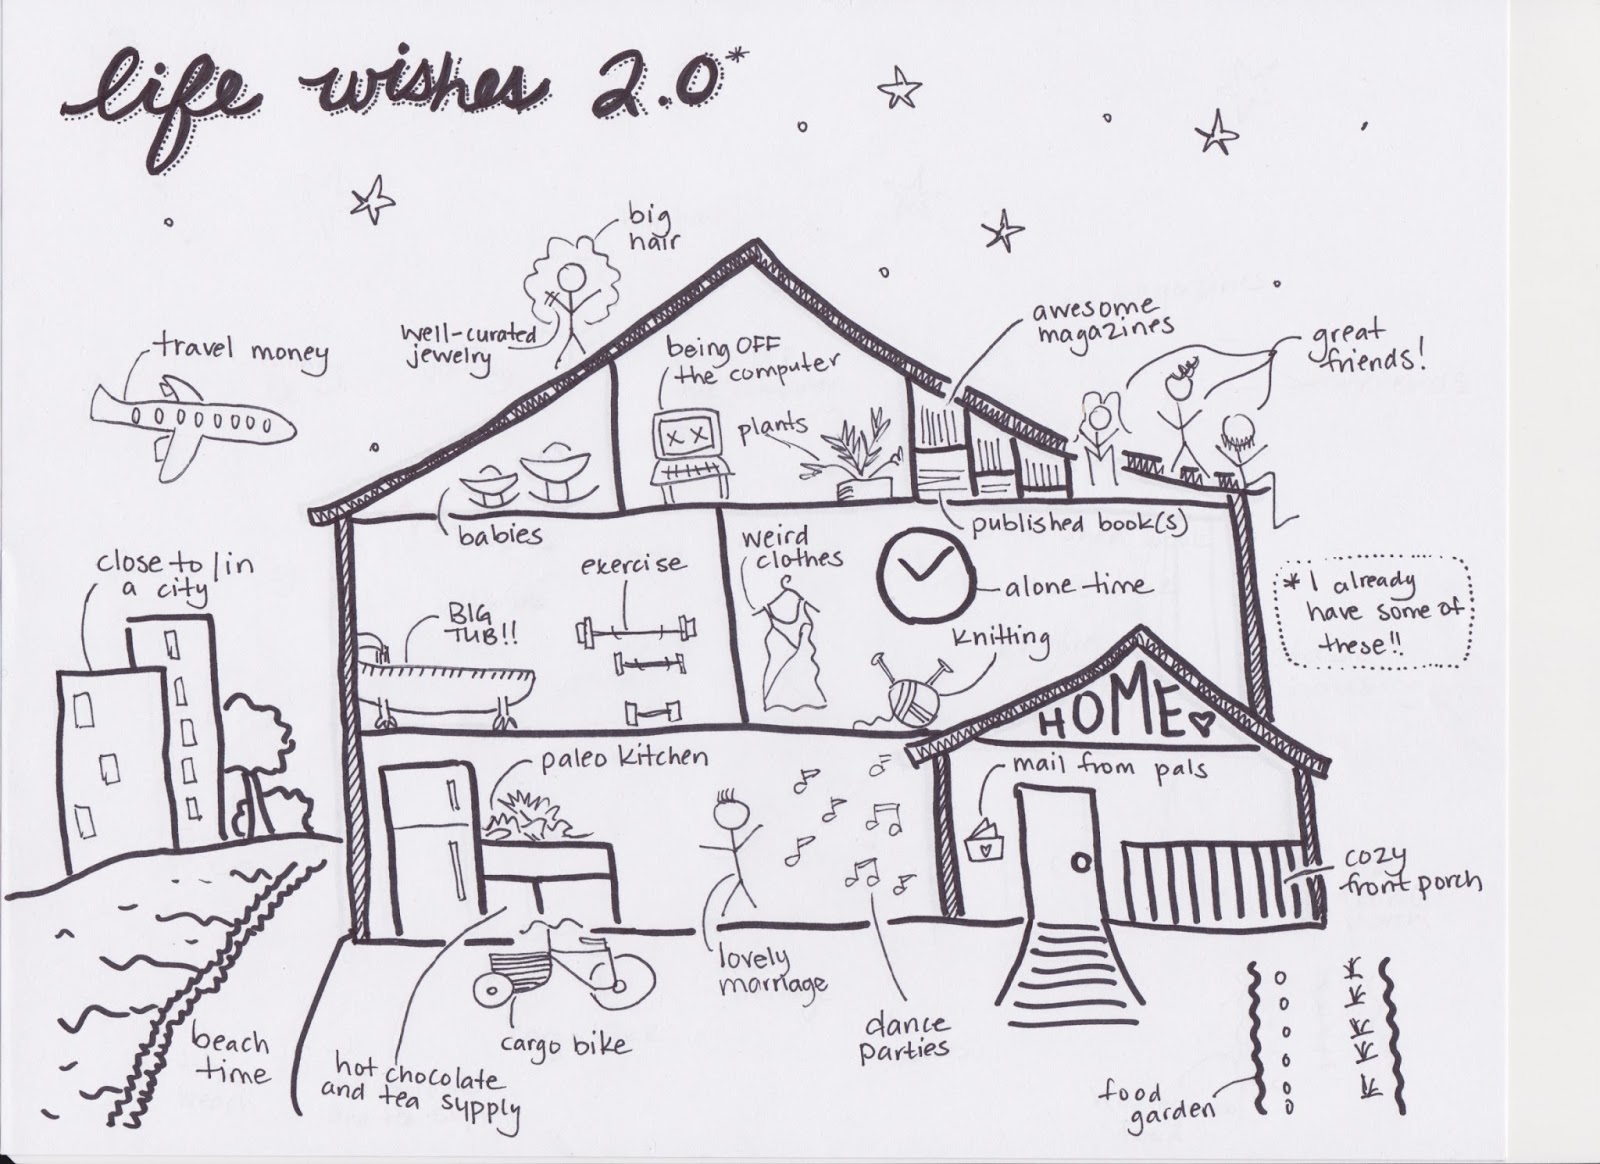 life wishes 2.0*
big
hair
well-curated
jewelry
travel money
being OFF
the computer
plants
awesome
magazines
great
friends!
babies
published book(s)
close to/in
a city
exercise
weird
clothes
alone time
BIG
TUB!!
knitting
* I already
have some of
these!!
HOME
paleo kitchen
mail from pals
cozy
front porch
lovely
marriage
dance
parties
cargo bike
beach
time
hot chocolate
and tea supply
food
garden